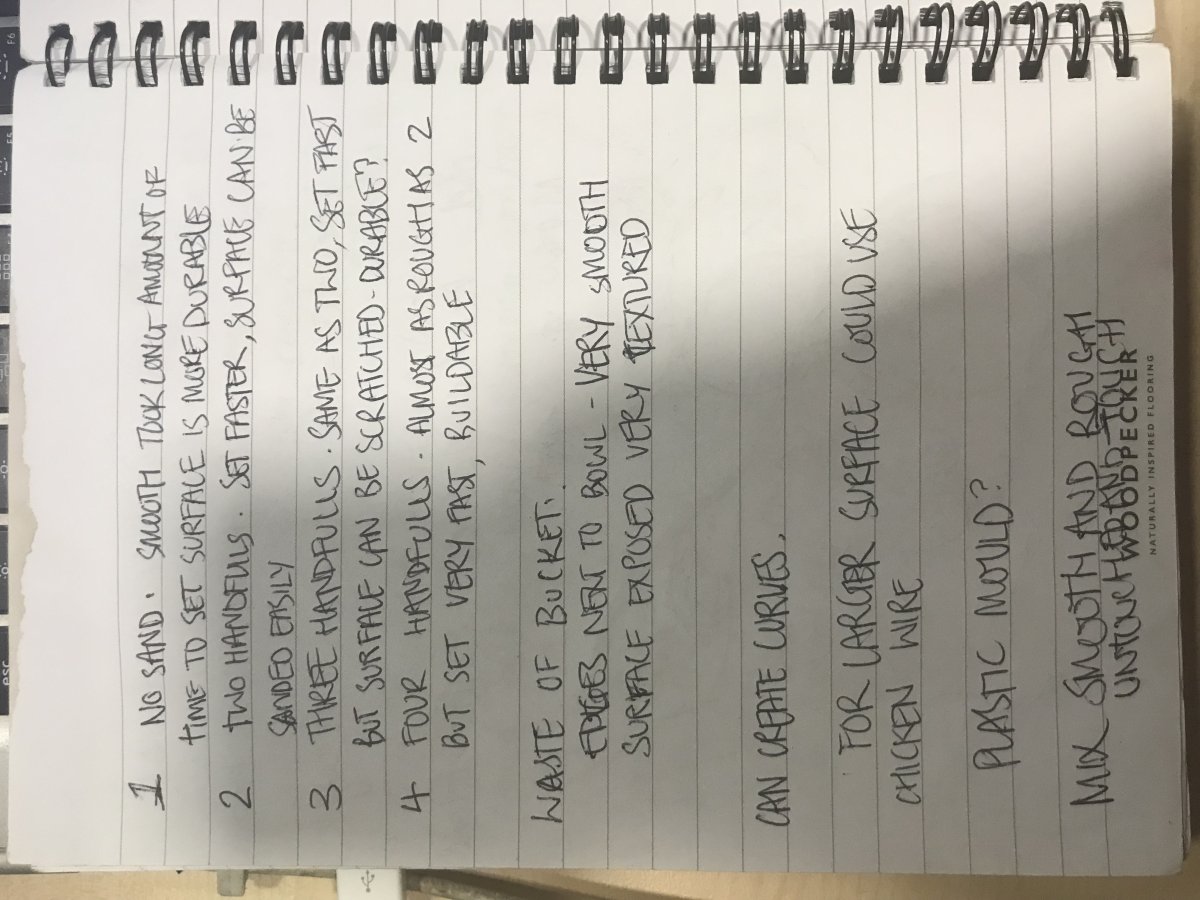 1 NO SAND. SMOOTH TOOK LONG AMOUNT OF
TIME TO SET SURFACE IS MORE DURABLE
2 TWO HANDFULS. SET FASTER, SURFACE CAN BE
SANDED EASILY
3 THREE HANDFULLS. SAME AS TWO, SET FAST
BUT SURFACE CAN BE SCRATCHED - DURABLE?
4 FOUR HANDFULLS - ALMOST AS ROUGH AS 2
BUT SET VERY FAST, BUILDABLE
WASTE OF BUCKET.
EDGES NEXT TO BOWL - VERY SMOOTH
SURFACE EXPOSED VERY TEXTURED
CAN CREATE CURVES.
FOR LARGER SURFACE COULD USE
CHICKEN WIRE
PLASTIC MOULD?
MIX SMOOTH AND ROUGH
UNTOUCHED AND TOUCH
WOODPECKER
NATURALLY INSPIRED FLOORING
esc
F5
F6